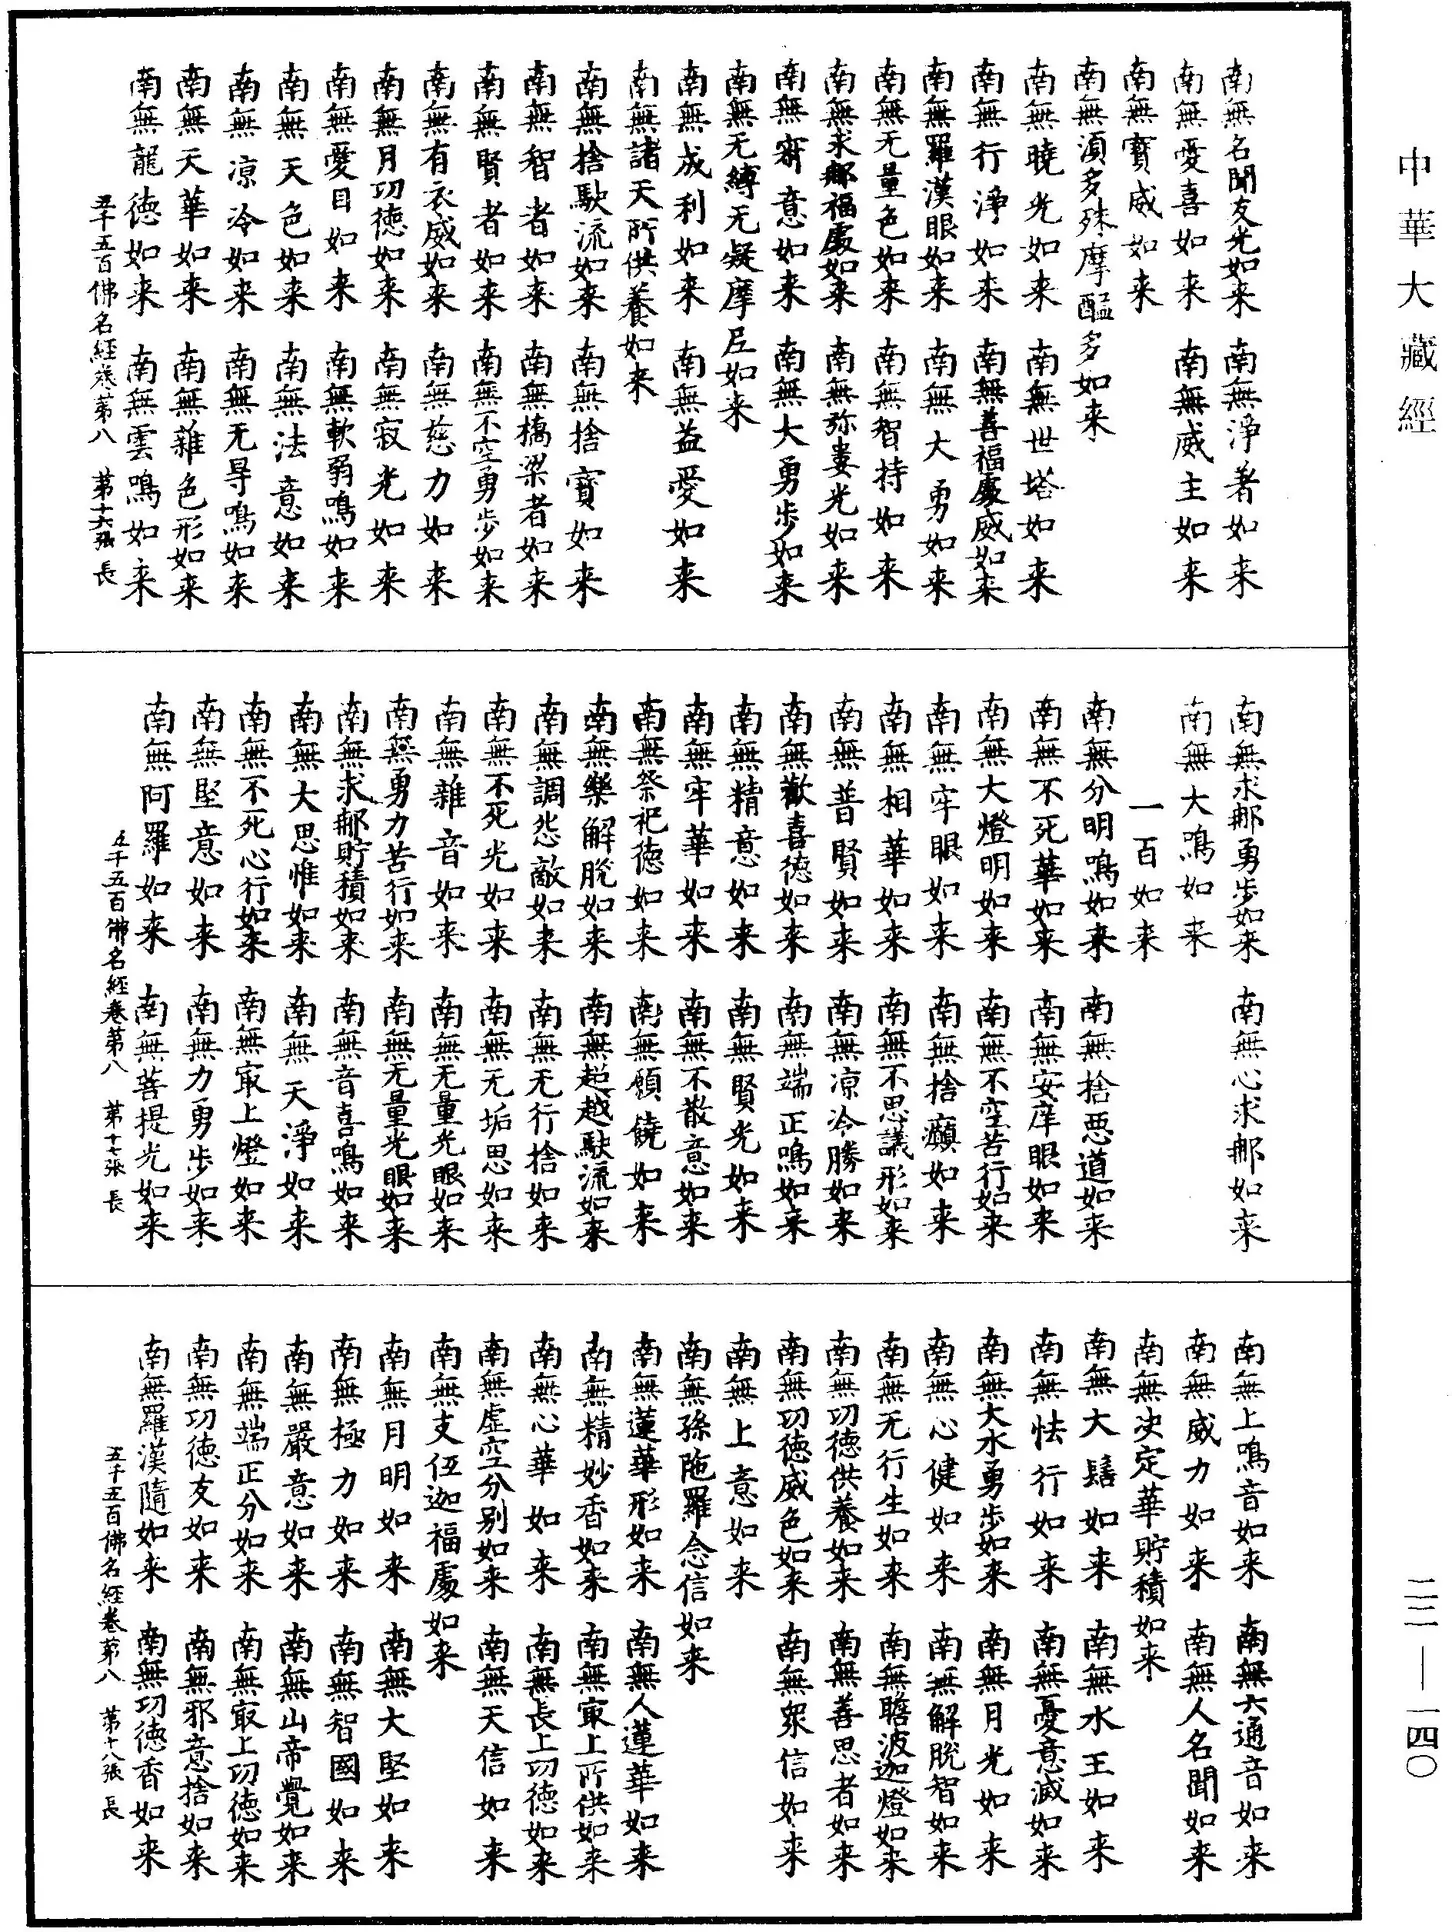 中華大藏經
南無名聞友光如来　南無淨者如来
南無憂喜如来　南無威主如来
南無寶威如来
南無湏多殊摩醯多如来
南無曉光如来　南無世塔如来
南無行淨如来　南無善福處威如来
南無羅漢眼如来　南無大勇如来
南無无量色如来　南無智持如来
南無求那福處如来　南無弥婁光如来
南無意如来　南無大勇步如来
南無无縛无凝摩尼如来
南無成利如来　南無益愛如来
南無諸天所供養如来
南無捨駃流如来　南無捨寶如来
南無智者如来　南無橋梁者如来
南無賢者如来　南無不空勇步如来
南無有衣威如来　南無慈力如来
南無月功徳如来　南無寂光如来
南無愛目如来　南無軟弱鳴如来
南無天色如来　南無法意如来
南無凉冷如来　南無无㝵鳴如来
南無天華如来　南無雜色形如来
南無龍徳如来　南無雲鳴如来
五千五百佛名經卷第八　第十六張　長
南無求那勇步如来　南無心求那如来
南無大鳴如来
一百如来
南無分明鳴如来　南無捨惡道如来
南無不死華如来　南無安庠眼如来
南無大燈明如来　南無不空苦行如来
南無牢眼如来　南無捨癡如来
南無相華如来　南無不思議形如来
南無普賢如来　南無凉冷勝如来
南無歡喜徳如来　南無端正鳴如来
南無精意如来　南無賢光如来
南無牢華如来　南無不散意如来
南無祭祀徳如来　南無願饒如来
南無樂解脫如来　南無超越駃流如来
南無調怨敵如来　南無无行捨如来
南無不死光如来　南無无垢思如来
南無雜音如来　南無无量光眼如来
南無勇力苦行如来　南無无量光眼如来
南無求那貯積如来　南無音喜鳴如来
南無大思惟如来　南無天淨如来
南無不死心行如来　南無㝡上燈如来
南無堅意如来　南無力勇步如来
南無阿羅如来　南無菩提光如来
五千五百佛名經卷第八　第十七張　長
南無上鳴音如来　南無六通音如来
南無威力如来　南無人名聞如来
南無决定華貯積如来
南無大髻如来　南無水王如来
南無怯行如来　南無憂意滅如来
南無大水勇步如来　南無月光如来
南無心健如来　南無解脫智如来
南無无行生如来　南無瞻波迦燈如来
南無功徳供養如来　南無善思者如来
南無功徳威色如来　南無衆信如来
南無上意如来
南無孫陁羅念信如来
南無蓮華形如来　南無人蓮華如来
南無精妙香如来　南無㝡上所供如来
南無心華如来　南無長上功徳如来
南無虛空分别如来　南無天信如来
南無支伍迦福處如来
南無月明如来　南無大堅如来
南無極力如来　南無智國如来
南無嚴意如来　南無山帝覺如来
南無端正分如来　南無㝡上功徳如来
南無功徳友如来　南無邪意捨如来
南無羅漢隨如来　南無功徳香如来
五千五百佛名經卷第八　第十八張　長
二二—一四〇